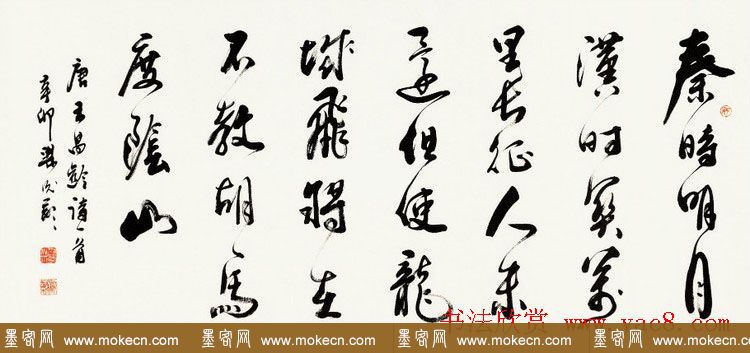 秦時明月
漢时關萬
里长征人未
還但使龍
城飛將在
不教胡馬
度陰山
唐王昌齡詩一首
辛卯
书法欣赏 www.yac8.com
墨客网 www.mokecn.com 墨客网 www.mokecn.com 墨客网 www.mokecn.com 墨客网 www.mokecn.com 墨客网